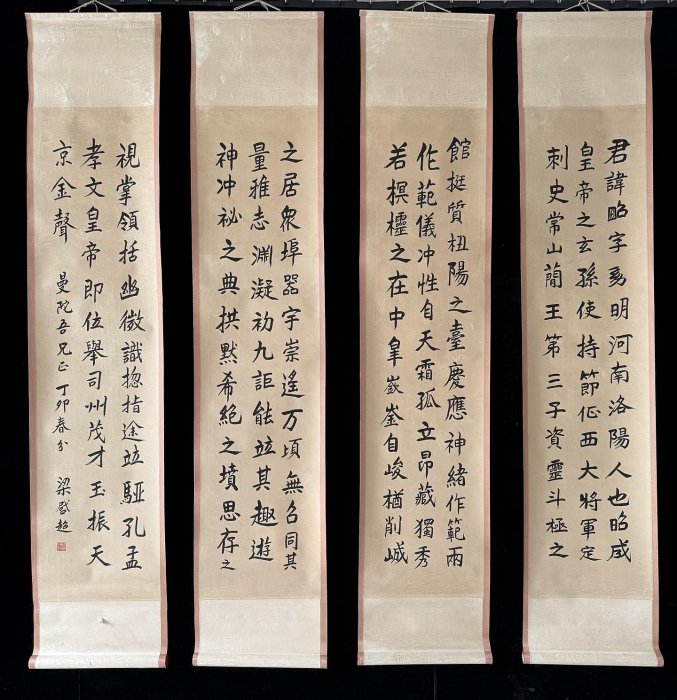 君諱昭字明河南洛陽人也昭成
皇帝之玄孫使持節征西大將軍定
刺史常山簡王第三子資靈斗極之
館挺質杻陽之臺慶應神緒作範兩
作範儀冲性自天霜孤立昂藏獨秀
若之在中崟自峻猶削成
之居眾埠器宇崇遙万頃無以同其
量雅志淵凝初九詎能竝其趣遊
神冲祕之典拱默希絕之墳思存之
視掌領括幽微識揔指途竝孔孟
孝文皇帝即位舉司州茂才玉振天
京金聲 曼陀吾兄正 丁卯春分 梁啓超